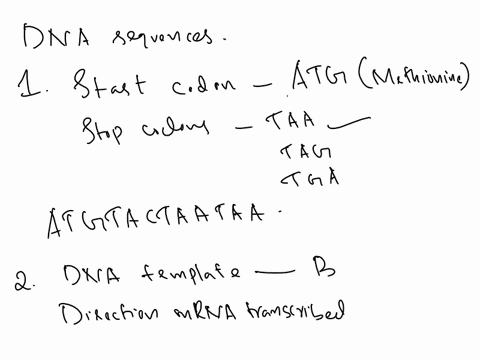 DNA sequences.
1. Start codon - ATG (Methionine)
Stop codons - TAA
TAG
TGA
ATGTACTAATAA.
2. DNA template - B
Direction mRNA transcribed